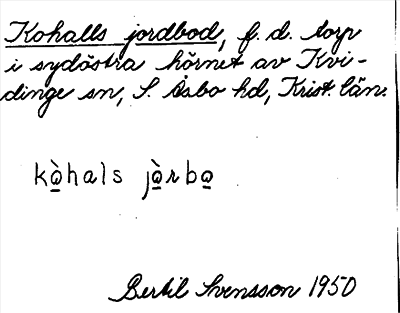 Kohalls jordbod, f. d. torp
i sydöstra hörnet av Kvi-
dinge sn, S. Åsbo hd, Krist. län.
kò̱hals jò̱rbo̱
Bertil Svensson 1950